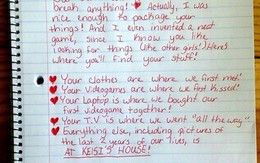 break anything! Actually, I was
nice enough to package your
things! And I even invented a neat
game, since I know you like
looking for things (like other girls!) Here's
where you'll find your stuff!
Your clothes are where we first met!
Your videogames are where we first kissed!
Your laptop is where we bought our
first videogame together!
Your T.V is where we went "all the way."
Everything else, including pictures of
the last 2 years of our lives, is
AT KEISI'S HOUSE!